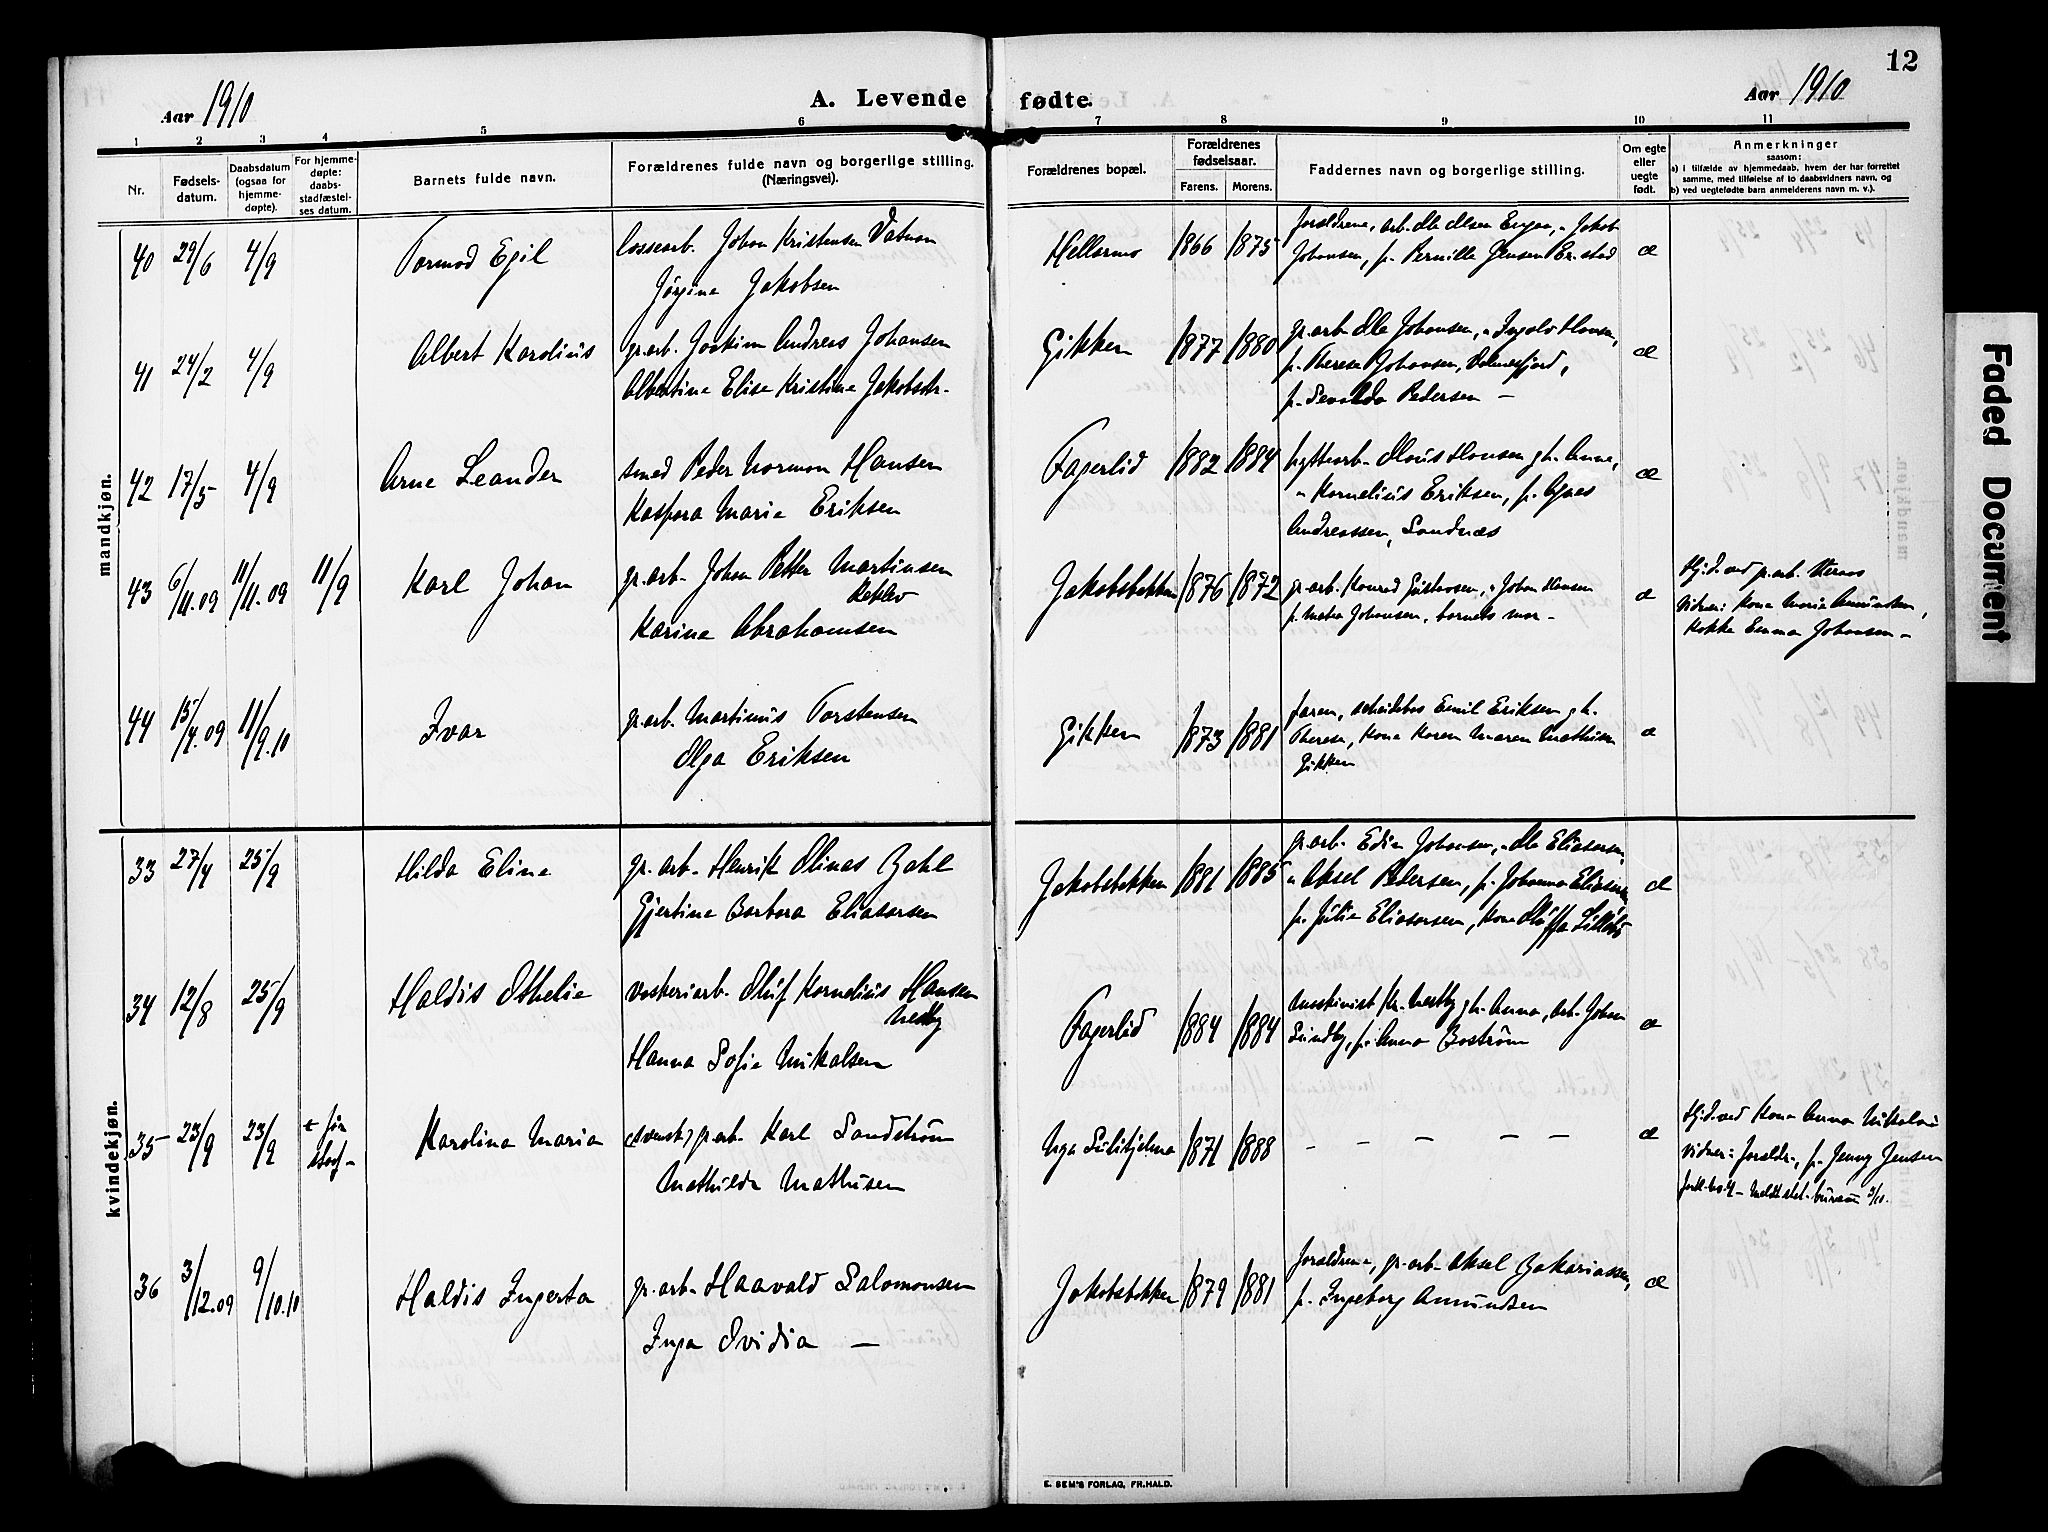 12
Aar 1910
A. Levende fødte.
Aar 1910
1 2 3 4 5 6 7 8 9 10 11
Nr.
Fødsels-
datum.
Daabsdatum
(ogsaa for
hjemme-
døpte).
For hjemme-
døpte:
daabs-
stadfæstel-
ses datum.
Barnets fulde navn.
Forældrenes fulde navn og borgerlige stilling.
(Næringsvei).
Forældrenes bopæl.
Forældrenes
fødselsaar.
Farens. Morens.
Faddernes navn og borgerlige stilling.
Om egte
eller
uegte
født.
Anmerkninger
saasom:
a) i tilfælde av hjemmedaab, hvem der har forrettet
samme, med tilføielse af to daabsvidners navn, og
b) ved uegtefødte barn anmelderens navn m. v.).
mandkjøn.
40 29/6 4/9 Tormod Egil
lossearb. Johan Kristensen Vatnan
Jørgine Jakobsen
Hellarmo 1866 1875
forældrene, arb. Ole Olsen, " Jakob
Johansen, p. Pernille Jensen
æ
41 24/2 4/9 Albert Karolius
gr.arb. Joakim Andreas Johansen
Albertine Elise Kristine Jakobsdr.
Gikken 1877 1880
gr.arb. Ole Johansen, " Ingolv Hansen,
p. Therese Johansen, Valnesfjord,
p. Pedersen —
æ
42 17/5 4/9 Arne Leander
smed Peder Norman Hansen
Kaspara Marie Eriksen
Fagerlid 1882 1884
hyttearb. Hansen g h. Anne,
" Kornelius Eriksen, p. Agnes
Andreassen, Sandnæs
æ
43 6/11.09 11/11.09 11/9 Karl Johan
gr.arb. Johan Petter Martinsen
Karina Abrahamsen
Jakobsbakken 1876 1872
gr.arb. Konrad Gustavsen, " Johan Hansen
p. Johansen, barnets mor —
æ
Hj.d. ved gr.arb.
Vidner: Kona Maria Amundsen,
Kokke Emma Johansen —
44 15/4.09 11/9.10 Ivar
gr.arb. Martinus Torstensen
Olga Eriksen
Gikken 1873 1881
faren, Emil Eriksen g h.
Therese, Kona Karen Maren Mathisen
Gikken
æ
kvindekjøn.
33 27/4 25/9 Hilda Eline
gr.arb. Henrik Olinas Zahl
Gjertine Barbara Eliasarsen
Jakobsbakken 1881 1885
gr.arb. Edin Johansen, " Ole Eliasarsen,
" Aksel Pedersen, p. Johanna Eliasarsen
p. Julie Eliasarsen, Kona
æ
34 12/8 25/9 Haldis Othelie
vaskeriarb. Oluf Kornelius Hansen
Nesby
Hanna Sofie Mikalsen
Fagerlid 1884 1884
Maskinist Kr. Nestby g h. Anna, arb. Johan
Lundby, p. Anna Boström
æ
35 23/9 23/9 + før
stadf.
Karolina Maria
(svensk) gr.arb. Karl Sandström
Mathilda Mathisen
Nya Sulitjelma 1871 1888
— — — — —
æ
Hj.d. ved Kona Anna
Vidner: forældr., p. Jenny Jensen
36 3/12.09 9/10.10 Haldis Ingerta
gr.arb. Haavald Salomonsen
Inga Ovidia —
Jakobsbakken 1879 1881
forældrene, gr.arb. Aksel Zakariassen,
p. Ingeborg Amundsen
æ
E. SEM'S FORLAG, FR.HALD.
Faded Document